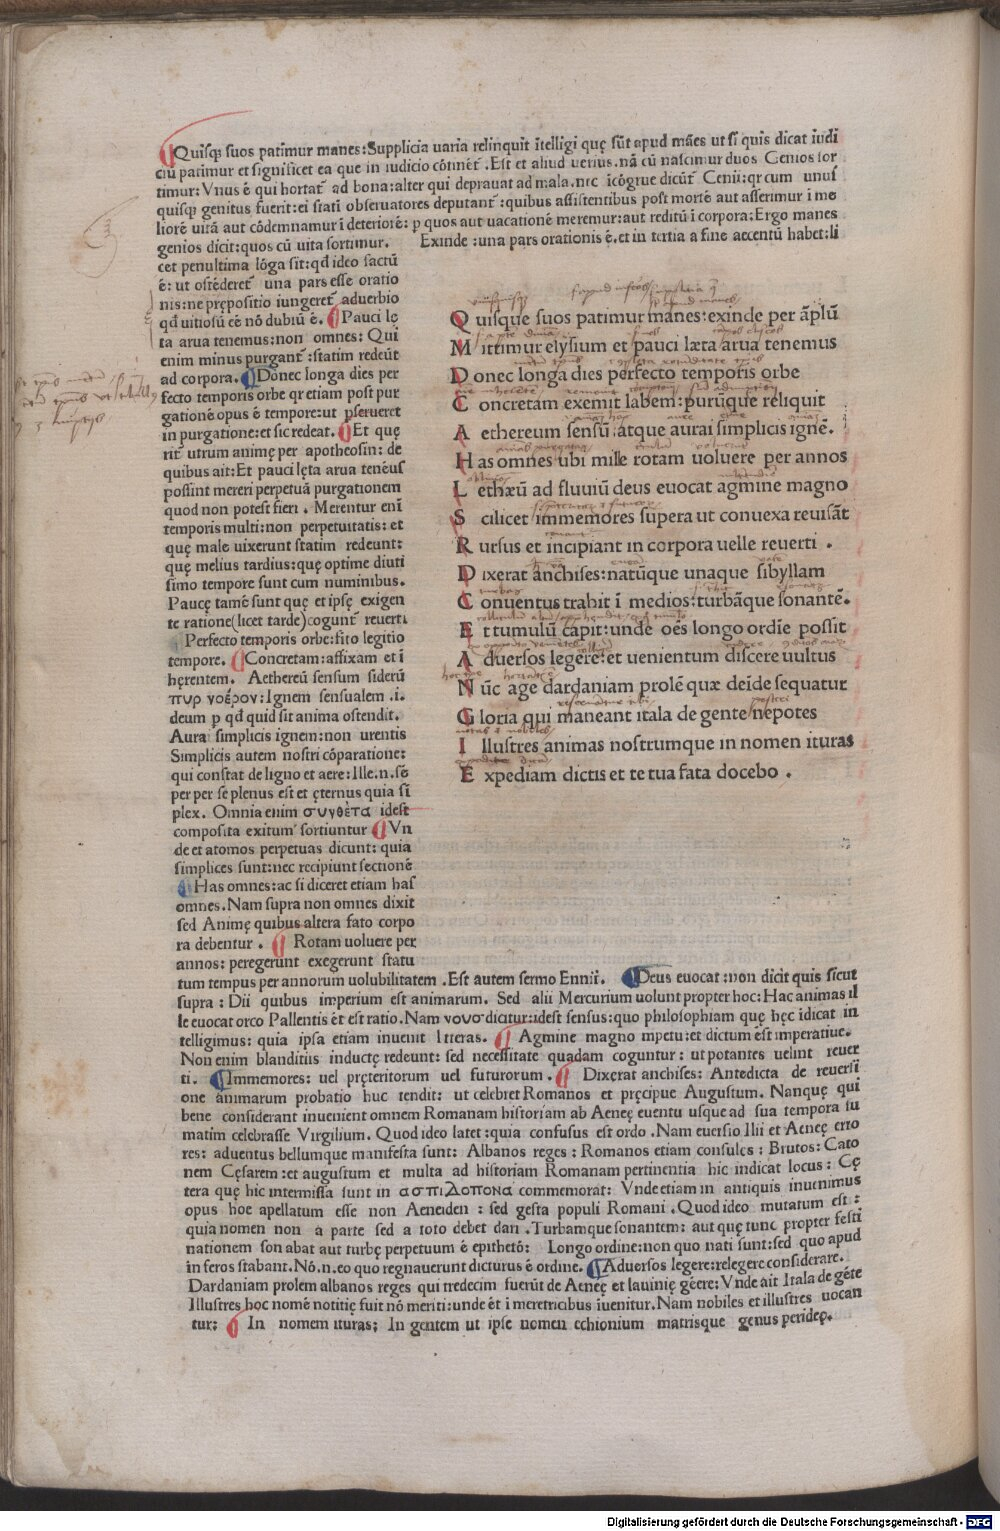 Quisq̨ suos patimur manes:Supplicia uaria relinquit ītelligi quę sūt apud māes ut si quis dicat iudi
ciū patimur et significet ea que in iudicio cōtinēt̄ .Est et aliud uerius.nā cū nascimur duos Genios sor
timur: Vnus ē qui hortat̄ ad bona:alter qui deprauat ad mala.nec īcōgrue dicūt̄ Genii:qr cum unus
quisq̨ genitus fuerit:ei stati obseruatores deputant̄ :quibus assistentibus post mortē aut asserimur ī me
liorē uitā aut cōdemnamur ī deteriorē: p quos aut uacationē meremur:aut reditū ī corpora:Ergo manes
genios dicit:quos cū uita sortimur. Exinde :una pars orationis ē.et in tertia a fine accentū habet:li
cet penultima lōga sit:qđ ideo factū
ē: ut ostēderet̄ una pars esse oratio
nis:ne prępositio iungeret̄ aduerbio
qđ uitiosū eē nō dubiū ē. Pauci lę
ta arua tenemus:non omnes: Qui
enim minus purgant̄ :statim redeūt
ad corpora. Donec longa dies per
fecto temporis orbe qr etiam post pur
gationē opus ē tempore:ut pseueret
in purgatione:et sic redeat. Et quę
rit̄ utrum animę per apotheosin: de
quibus ait:Et pauci lęta arua tenēus
possint mereri perpetuā purgationem
quod non potest fieri . Merentur enī
temporis multi:non perpetuitatis: et
quę male uixerunt statim redeunt:
quę melius tardius:quę optime diuti
simo tempore sunt cum numinibus.
Paucę tamē sunt quę et ipsę exigen
te ratione(licet tarde)cogunt̄ reuerti
Perfecto temporis orbe:fito legitio
tempore. Concretam:affixam et ī
hęrentem. Aethereū sensum siderū
πυρ νοέρον:Ignem sensualem .i.
deum p qđ quid sit anima ostendit.
Aura simplicis ignem:non urentis
Simplicis autem nostri cōparatione:
qui constat de ligno et aere:Ille.n.sē
per per se plenus est et ęternus quia si
plex. Omnia enim συνθὲτα idest
composita exitum sortiuntur Vn
de et atomos perpetuas dicunt: quia
simplices sunt:nec recipiunt sectionē
Has omnes:ac si diceret etiam has
omnes.Nam supra non omnes dixit
sed Animę quibus altera fato corpo
ra debentur . Rotam uoluere per
annos: peregerunt exegerunt statu
Quisque suos patimur manes:exinde per āplū
Mittimur elysium et pauci læta arua tenemus
Donec longa dies perfecto temporis orbe
Concretam exemit labem:purūque reliquit
Aethereum sensū atque aurai simplicis ignē.
Has omnes ubi mille rotam uoluere per annos
Lethæū ad fluuiū deus euocat agmine magno
Scilicet immemores supera ut conuexa reuisāt
Rursus et incipiant in corpora uelle reuerti .
Dixerat anchises:natūque unaque sibyllam
Conuentus trahit ī medios:turbāque sonantē.
Et tumulū capit:unde oēs longo ordīe possit
Aduersos legere:et uenientum discere uultus
Nūc age dardaniam prolē quæ deīde sequatur
Gloria qui maneant itala de gente nepotes
Illustres animas nostrumque in nomen ituras
Expediam dictis et te tua fata docebo .
tum tempus per annorum uolubilitatem .Est autem sermo Ennii. Deus euocat :non dicit quis sicut
supra : Dii quibus imperium est animarum. Sed alii Mercurium uolunt propter hoc: Hac animas il
le euocat orco Pallentis et est ratio. Nam νουσ dicitur:idest sensus:quo philosophiam quę hęc idicat in
telligimus: quia ipsa etiam inuenit litteras. Agmine magno mpetu:et dictum est imperatiue.
Non enim blanditiis inductę redeunt: sed necessitate quadam coguntur : ut potantes uelint reuer
ti. Immemores: uel pręteritorum uel futurorum . Dixerat anchises: Antedicta de reuersi
one animarum probatio huc tendit: ut celebret Romanos et pręcipue Augustum. Nanquę qui
bene considerant inuenient omnem Romanam historiam ab Aeneę euentu usque ad sua tempora su
matim celebrasse Virgilium. Quod ideo latet :quia confusus est ordo .Nam euersio Ilii et Aeneę erro
res: aduentus bellumque manifesta sunt: Albanos reges : Romanos etiam consules : Brutos: Cato
nem Cęsarem :et augustum et multa ad historiam Romanam pertinentia hic indicat locus : Cę
tera quę hic intermissa sunt in ασπιΔοπονα commemorat: Vnde etiam in antiquis inuenimus
opus hoc apellatum esse non Aeneiden : sed gesta populi Romani .Quod ideo mutatum est :
quia nomen non a parte sed a toto debet dari .Turbamque sonantem: aut quę tunc propter festi
nationem son abat aut turbę perpetuum ē epithetō: Longo ordine:non quo nati sunt:sed quo apud
inferos stabant. Nō.n.eo quo regnauerunt dicturus ē ordine. Aduersos legere:relegere considerare.
Dardaniam prolem albanos reges qui tredecim fuerūt de Aeneę et lauinię gēere: Vnde ait Itala de gēte
Illustres hoc nomē notitię fuit nō meriti:unde ēt ī meretricibus īuenitur.Nam nobiles et illustres uocan
tur: In nomem ituras; In gentem ut ipse nomen echionium matrisque genus peridep.
Digitalisierung gefördert durch die Deutsche Forschungsgemeinschaft - DFG